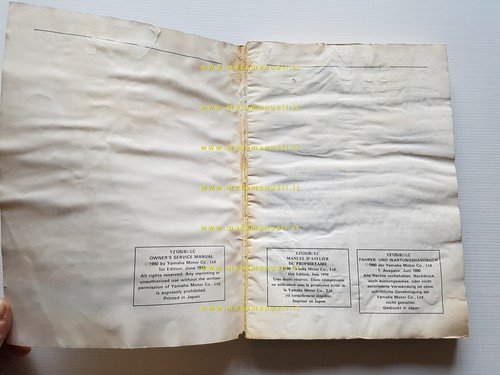 www.motomanuali.it
www.motomanuali.it
www.motomanuali.it
www.motomanuali.it
www.motomanuali.it
www.motomanuali.it
www.motomanuali.it
www.motomanuali.it
YZ125(B)/LC
OWNER'S SERVICE MANUAL
©1990 by Yamaha Motor Co., Ltd.
1st Edition, June 1990
All rights reserved. Any reprinting or
unauthorized use without the written
permission of Yamaha Motor Co., Ltd.
is expressly prohibited.
Printed in Japan
YZ125(B)/LC
MANUEL D'ATELIER
DU PROPRIETAIRE
©1990 Yamaha Motor Co., Ltd.
1ère Edition, Juin 1990
Tous droits réservés. Toute réimpression
ou utilisation sans la permission écrite de
la Yamaha Motor Co., Ltd.
est formellement interdite.
Imprimé au Japon
YZ125(B)/LC
FAHRER- UND WARTUNGSHANDBUCH
©1990 der Yamaha Motor Co., Ltd.
1. Ausgabe, Juni 1990
Alle Rechte vorbehalten. Nachdruck,
auch auszugsweise, oder nicht
autorisierte Verwendung ist ohne
schriftliche Genehmigung der
Yamaha Motor Co., Ltd.
nicht gestattet.
Gedruckt in Japan